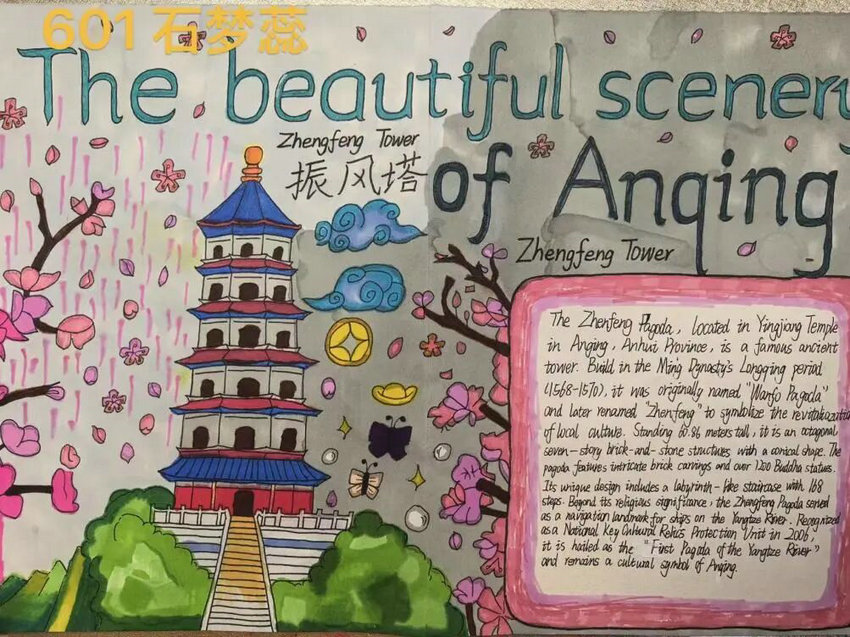 601 石梦蕊
The beautiful scenery
Zhengfeng Tower
振风塔
of Anqing
Zhengfeng Tower
The Zhenfeng Pagoda, located in Yingjiang Temple
in Anqing, Anhui Province, is a famous ancient
tower. Build in the Ming Dynasty's Longqing period
(1568-1570), it was originally named "Wanfo Pagoda"
and later renamed "Zhenfeng" to symbolize the revitalization
of local culture. Standing 60.86 meters tall, it is an octagonal
seven-story brick-and-stone structures with a conical shape. The
pagoda features intricate brick carvings and over 1200 Buddha statues.
Its unique design includes a labyrinth-like staircase with 168
steps. Beyond its religious significance, the Zhengfeng Pagoda served
as a navigation landmark for ships on the Yangtze River. Recognized
as a National Key Cultural Relics Protection Unit in 2006,
it is hailed as the "First Pagoda of the Yangtze River"
and remains a cultural symbol of Anqing.